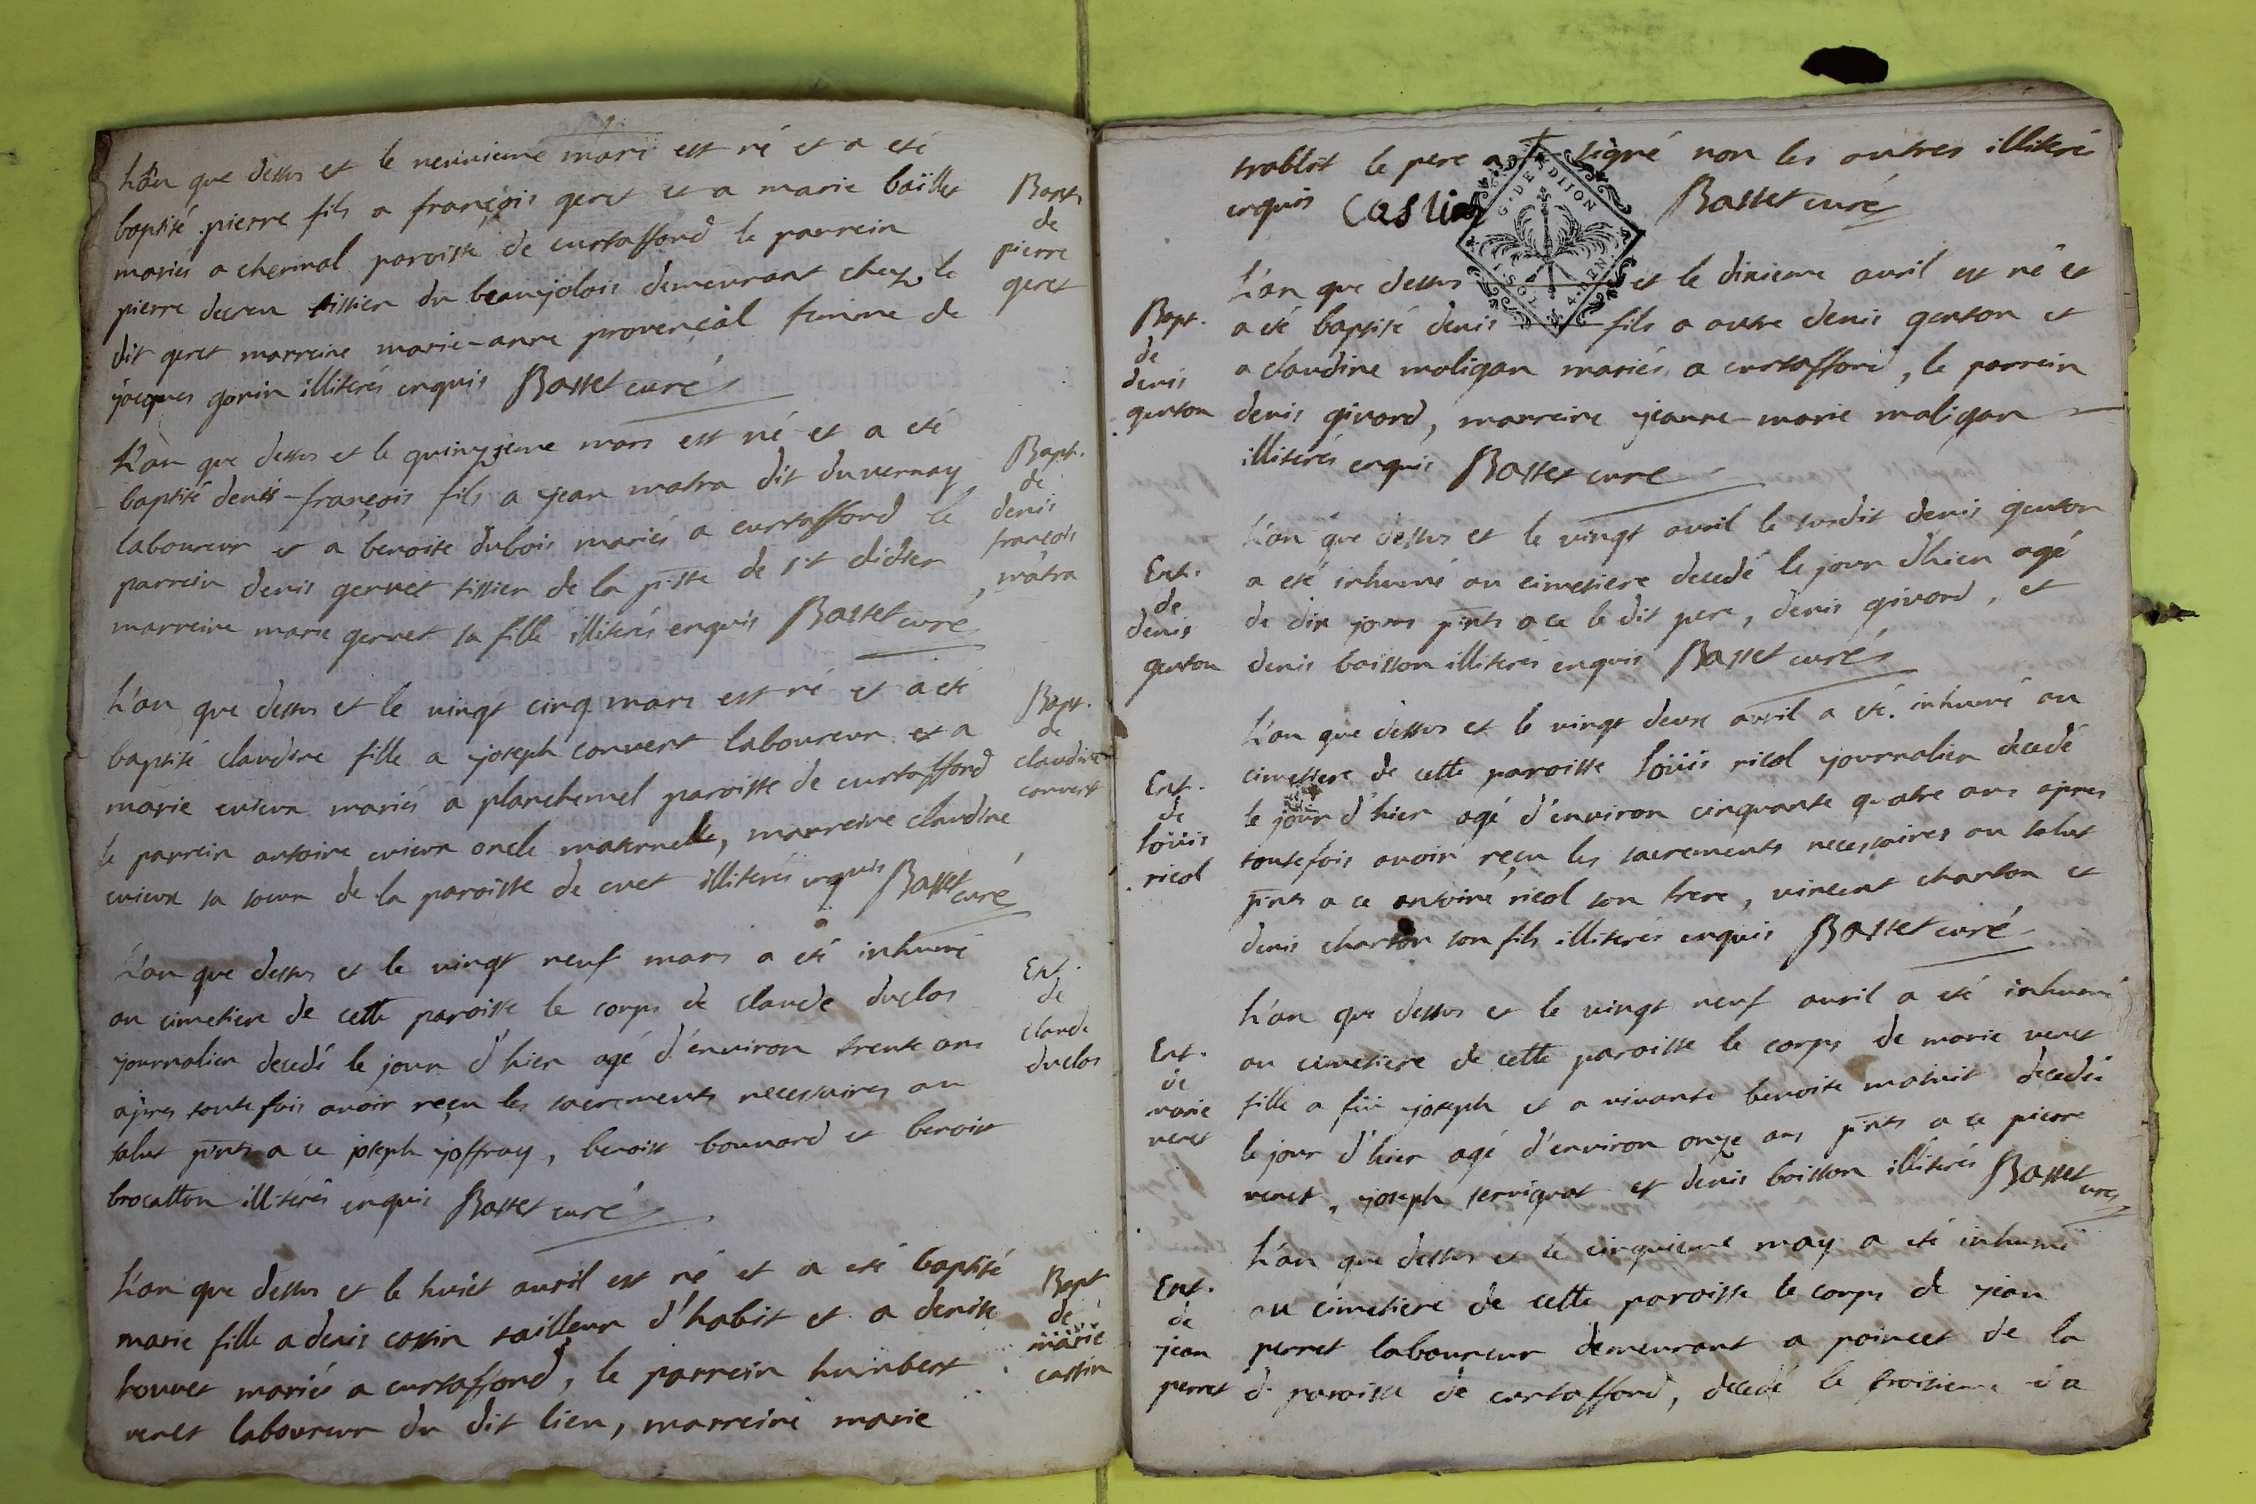 L'an que dessus et le neuvieme mars est né et a eté
baptisé pierre fils a françois geret et a marie baillet
mariés a cherinal paroisse de curtaffond le parrein
pierre decreu tissier du beaujolois demeurant chez le
dit geret marreine marie-anne provençal femme de
jacques gonin illiterés enquis Basset curé
Bapt.
de
pierre
geret
L'an que dessus et le quinzieme mars est né et a eté
baptisé denis-françois fils a jean matra dit duvernay
laboureur et a benoite dubois mariés a curtaffond le
parrein denis gernet tissier de la p.sse de s.t didier
marreine marie gernet sa fille illiterés enquis Basset curé
Bapt.
de
denis
françois
matra
L'an que dessus et le vingt cinq mars est né et a eté
baptisé claudine fille a joseph convert laboureur et a
marie cuieux mariés a planchemel paroisse de curtaffond
le parrein antoine cuieux oncle maternelle, marreine claudine
cuieux sa soeur de la paroisse de cuet illiterés enquis Basset curé
Bapt.
de
claudine
convert
L'an que dessus et le vingt neuf mars a eté inhumé
au cimetiere de cette paroisse le corps de claude duclos
journalier decedé le jour d'hier agé d'environ trente ans
apres toute fois avoir reçu les sacrements necessaires au
salut p.nts a ce joseph joffray, benoist bouvard et benoist
brocatton illiterés enquis Basset curé
Ent.
de
claude
duclos
L'an que dessus et le huict avril est né et a eté baptisé
marie fille a denis cassin tailleur d'habit et a denise
houvet mariés a curtaffond, le parrein humbert
veret laboureur du dit lieu, marreine marie
Bapt
de
marie
cassin
trablit le pere a signé non les autres illiteré
enquis Cassin Basset curé
G. DE DIJON
4. DEN.
L'an que dessus et le dixieme avril est né et
a eté baptisé denis fils a autre denis genton et
a claudine maligan mariés a curtaffond, le parrein
denis givord, marreine jeanne-marie maligan
illiterés enquis Basset curé
Bapt.
de
denis
genton
L'an que dessus et le vingt avril le susdit denis genton
a eté inhumé au cimetiere decedé le jour d'hier agé
de dix jours p.nts a ce le dit pere, denis givord, et
denis boisson illiterés enquis Basset curé
Ent.
de
denis
genton
L'an que dessus et le vingt deux avril a eté inhumé au
cimetiere de cette paroisse loüis ricol journalier decedé
le jour d'hier agé d'environ cinquante quatre ans apres
toutefois avoir reçu les sacrements necessaires au salut
p.nts a ce antoine ricol son frere, vincent charton et
denis charton son fils illiterés enquis Basset curé
Ent.
de
loüis
ricol
L'an que dessus et le vingt neuf avril a eté inhumé
au cimetiere de cette paroisse le corps de marie veret
fille a füe joseph et a vivante benoite mathuit decedée
le jour d'hier agé d'environ onze ans p.nts a ce pierre
veret, joseph servignat et denis boisson illiterés Basset curé
Ent.
de
marie
veret
L'an que dessus et le cinquieme may a eté inhumé
au cimetiere de cette paroisse le corps de jean
perret laboureur demeurant a poincet de la
d. paroisse de curtaffond, decedé le troisieme d a
Ent.
de
jean
perret